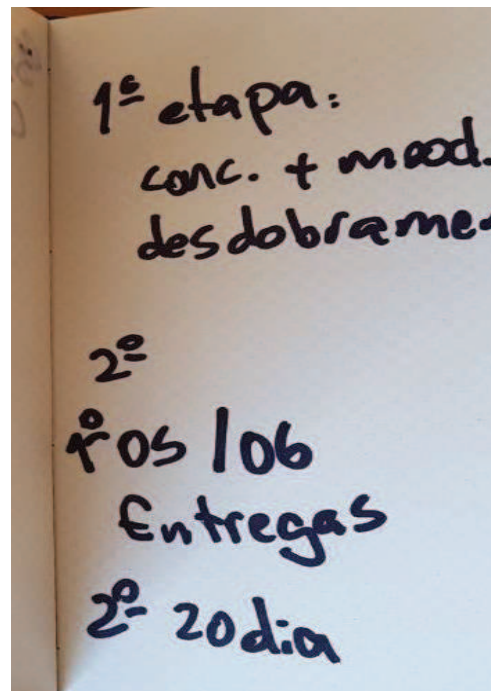 1ª etapa:
conc. + mood.
desdobrame
2º
1º 05/06
Entregas
2º 20 dia